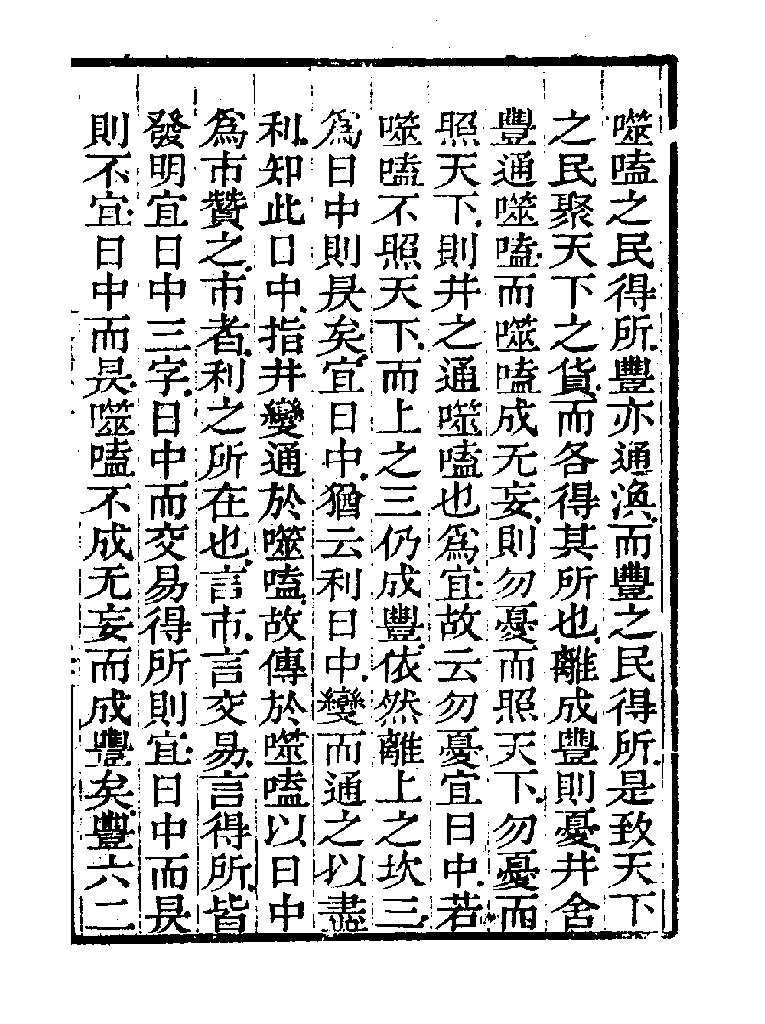 噬嗑之民得所豐亦通渙而豐之民得所是致天下
之民聚天下之貨而各得其所也離成豐則憂井舍
豐通噬嗑而噬嗑成无妄則勿憂而照天下勿憂而
照天下則井之通噬嗑也爲宜故云勿憂宜日中若
噬嗑不照天下而上之三仍成豐依然離上之坎三
爲日中則昃矣宜日中猶云利日中變而通之以盡
利知此日中指井變通於噬嗑故傳於噬嗑以日中
爲市贊之市者利之所在也言市言交易言得所皆
發明宜日中三字日中而交易得所則宜日中而昃
則不宜日中而昃噬嗑不成无妄而成豐矣豐六二